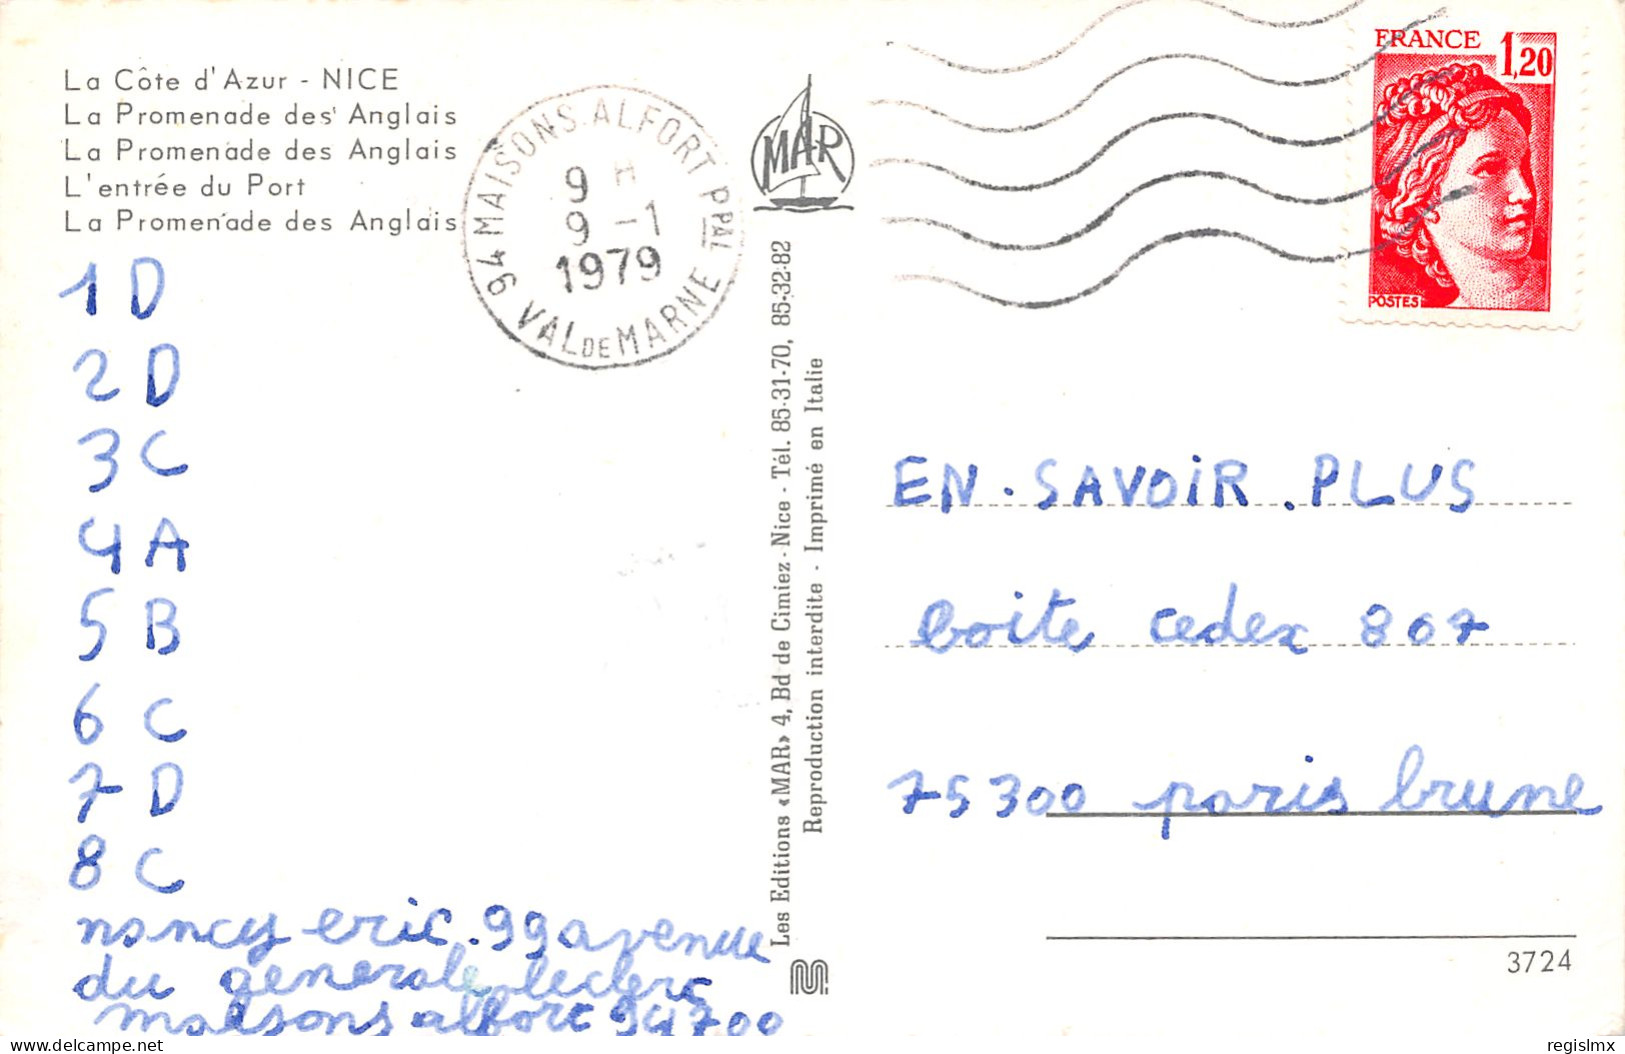 La Côte d'Azur - NICE
La Promenade des Anglais
La Promenade des Anglais
L'entrée du Port
La Promenade des Anglais
94 MAISONS-ALFORT PPAL
9 H
9 -1
1979
VAL DE MARNE
MAR
FRANCE 1,20
POSTES
1 D
2 D
3 C
4 A
5 B
6 C
7 D
8 C
nancy eric. 99 avenue
du generale leclerc
maisons alfort 94700
Les Editions «MAR» 4, Bd de Cimiez - Nice - Tél. 85-31-70, 85-32-82
Reproduction interdite - Imprimé en Italie
EN.SAVOIR.PLUS
boite cedex 807
75300 paris brune
3724
delcampe.net
regislmx